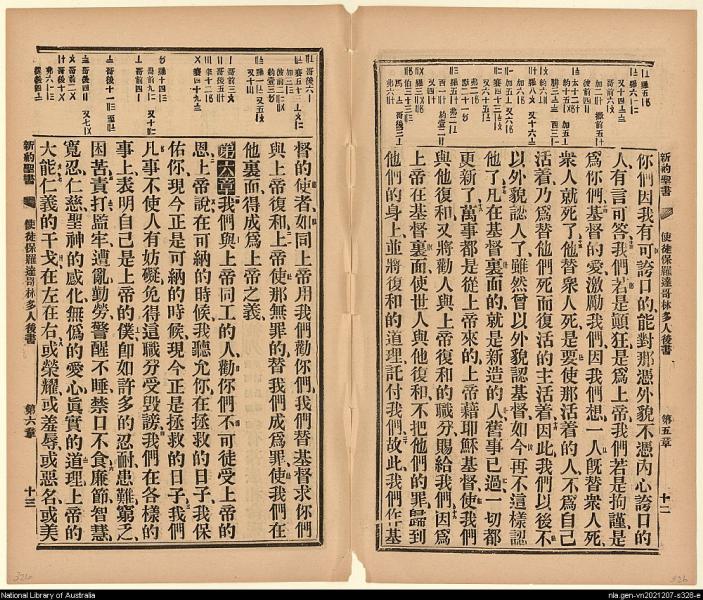 新約聖書
使徒保羅達哥林多人後書
第五章
十二
你們因我有可誇口的能對那憑外貌不憑內心誇口的
人有言可答我們若是顛狂是爲上帝我們若是拘謹是
爲你們基督的愛激勵我們因我們想一人旣替衆人死
衆人就死了他替衆人死是要使那活着的人不爲自己
活着乃爲替他們死而復活的主活着因此我們以後不
以外貌認人了雖然曾以外貌認基督如今再不這樣認
他了凡在基督裏面的就是新造的人舊事已過一切都
更新了萬事都是從上帝來的上帝藉耶穌基督使我們
與他復和又將勸人與上帝復和的職分賜給我們因爲
上帝在基督裏面使世人與他復和不把他們的罪歸到
他們的身上並將復和的道理託付我們故此我們作基
督的使者如同上帝用我們勸你們我們替基督求你們
與上帝復和上帝使那無罪的替我們成爲罪使我們在
他裏面得成爲上帝之義
第六章我們與上帝同工的人勸你們不可徒受上帝的
恩上帝說在可納的時候我聽允你在拯救的日子我保
佑你現今正是可納的時候現今正是拯救的日子我們
凡事不使人有妨礙免得這職分受毀謗我們在各樣的
事上表明自己是上帝的僕卽如許多的忍耐患難窮乏
困苦責打監牢遭亂勤勞警醒不睡禁口不食廉節智慧
寬忍仁慈聖神的感化無僞的愛心眞實的道理上帝的
大能仁義的干戈在左在右或榮耀或羞辱或惡名或美
新約聖書
使徒保羅達哥林多人後書
第六章
十三
326
326
National Library of Australia
nla.gen-vn2021207-s328-e